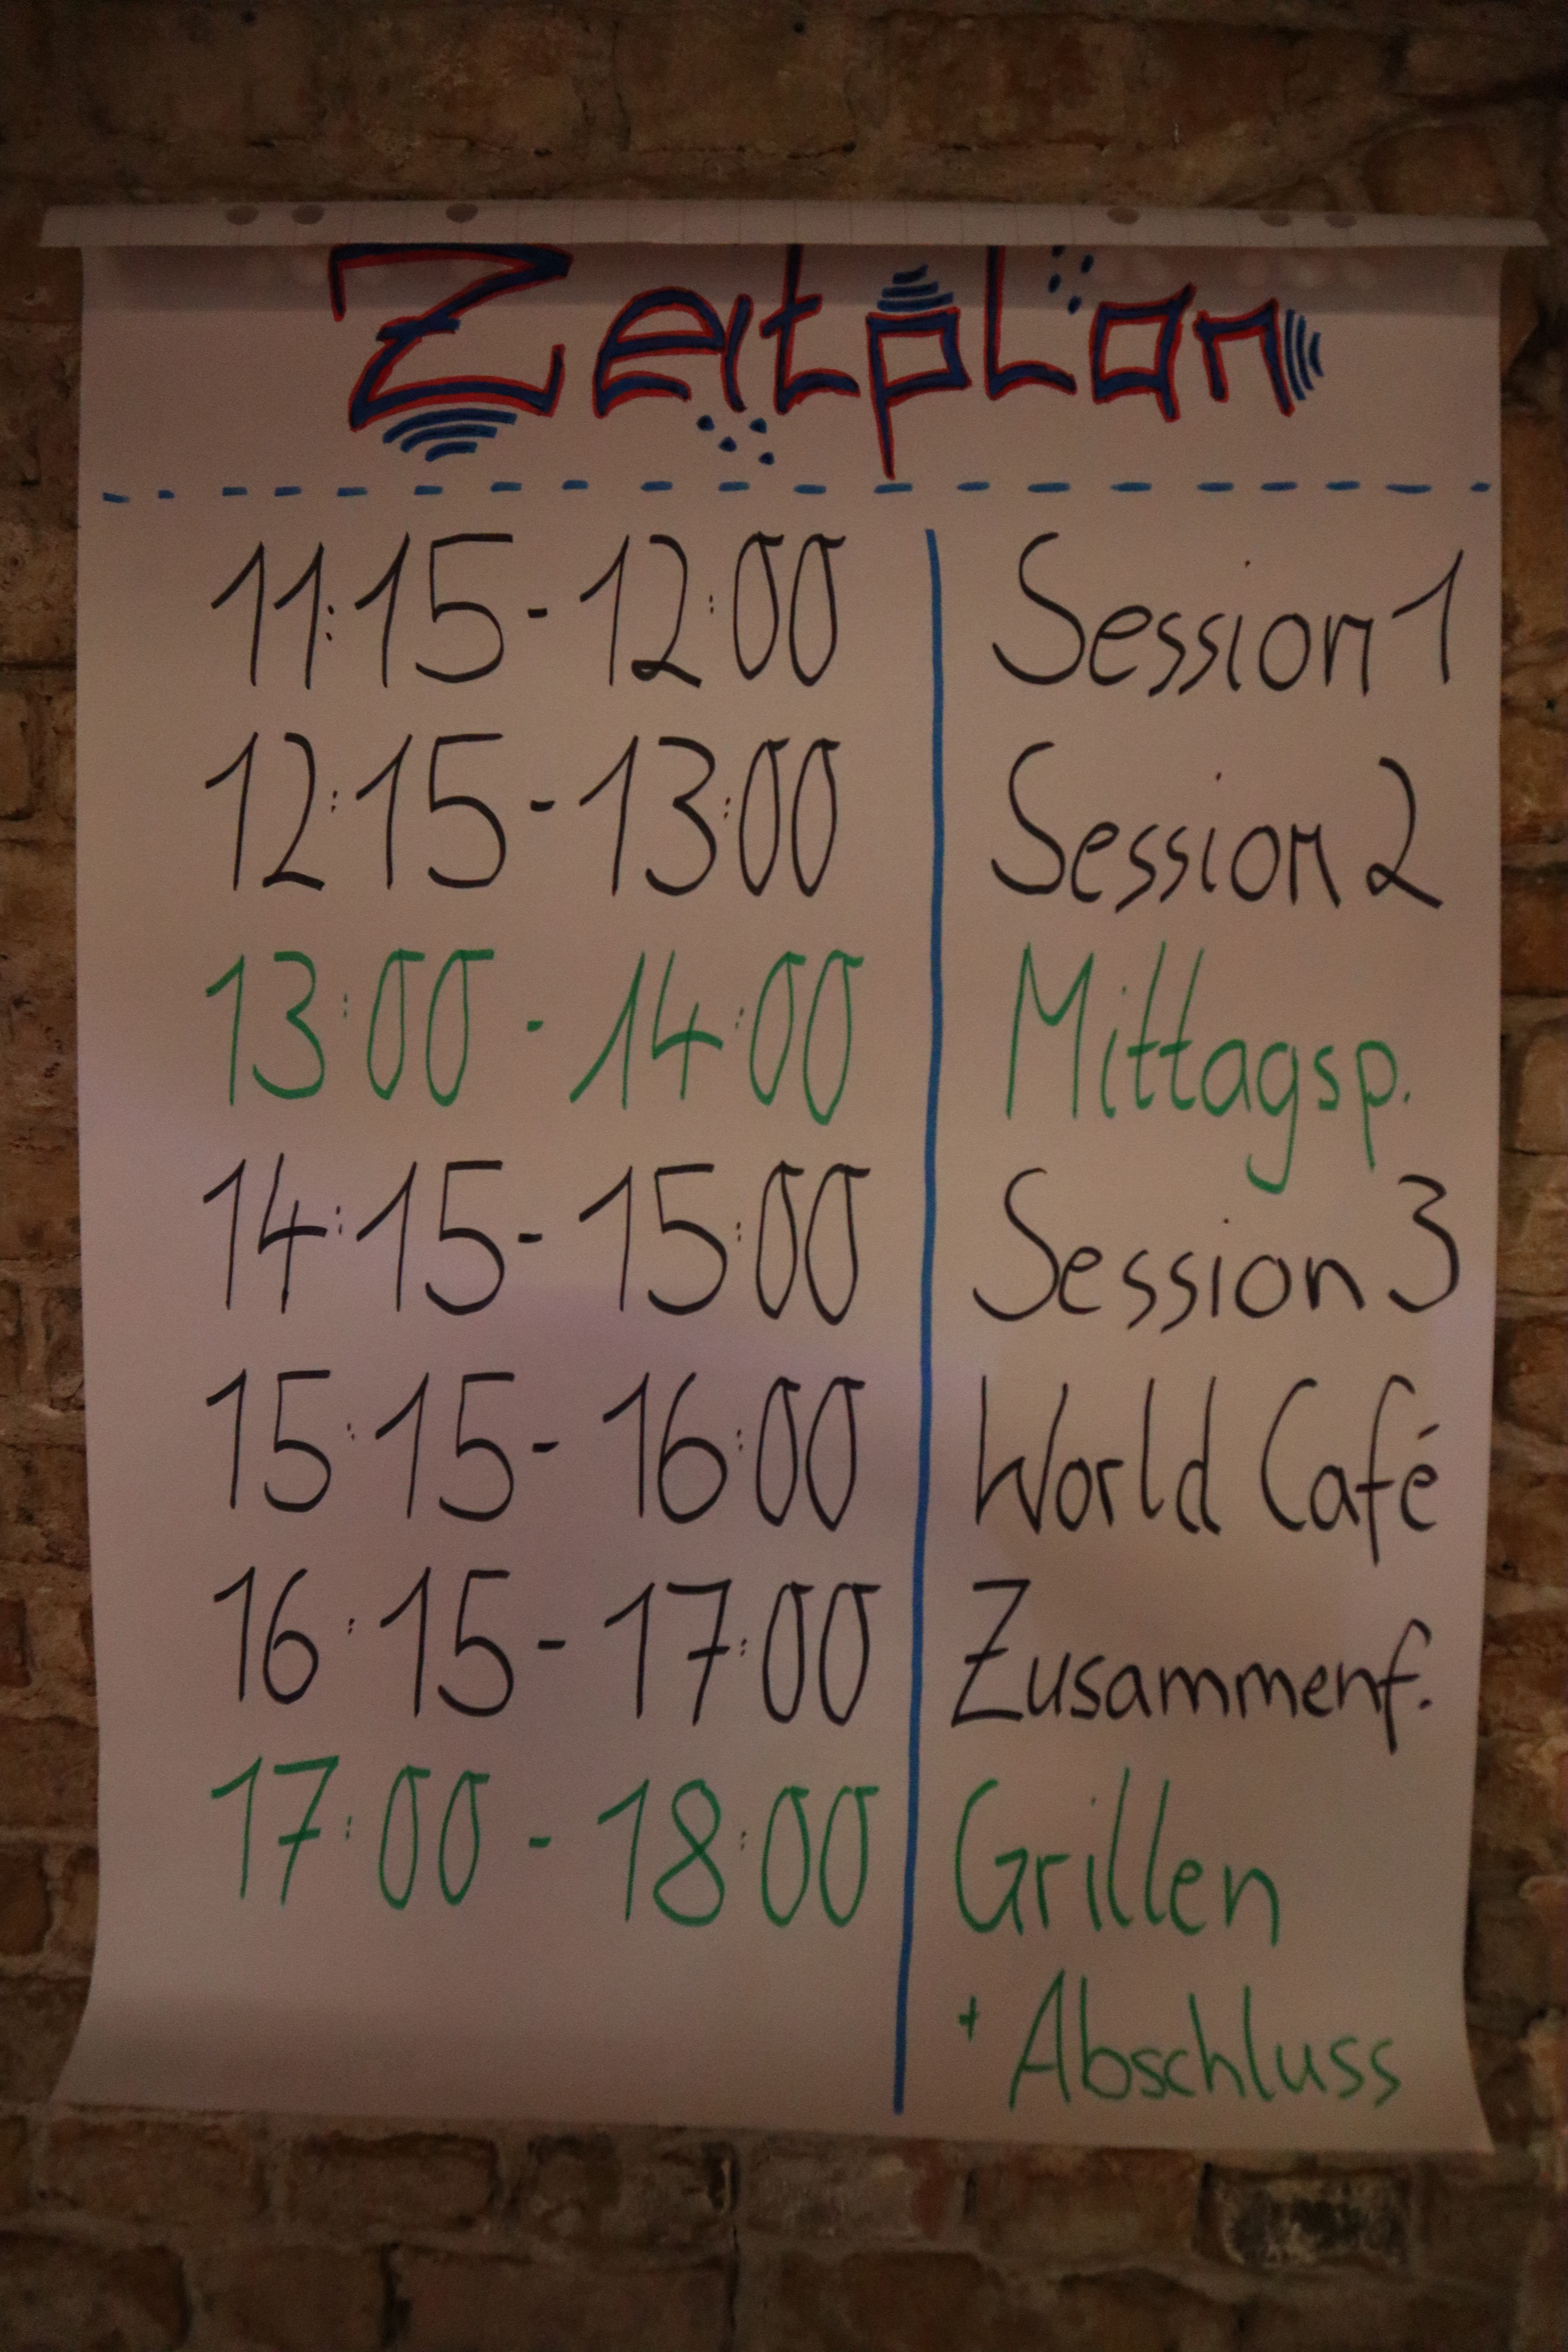 Zeitplan
11:15 - 12:00 Session 1
12:15 - 13:00 Session 2
13:00 - 14:00 Mittagsp.
14:15 - 15:00 Session 3
15:15 - 16:00 World Café
16:15 - 17:00 Zusammenf.
17:00 - 18:00 Grillen
+ Abschluss